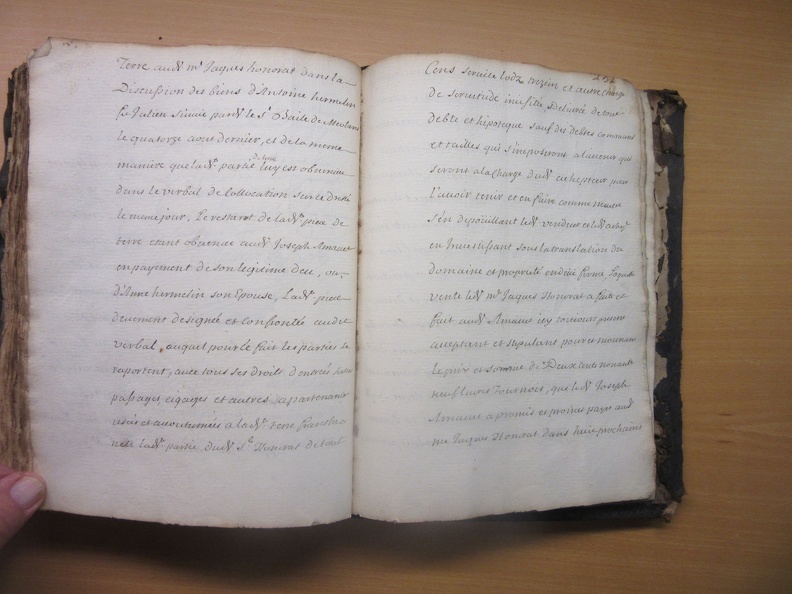 Terre audt me Jaques honorat dans la
Discussion des biens d'Antoine hermelin
fs Julien suivie pardt le Sr Baile de Meolans
le quatorze aout dernier, et de la meme
maniere que ladte partie de terre luy est obvenue
dans le verbal de Collocation sur ce dressé
le meme jour, Le restant de ladte piece de
terre etant obvenüe audt Joseph Amavet
en payement de son legitime deu, ou,
d'Anne hermelin son Epouse, Ladte piece
deuement designée et confrontée audit
verbal, auquel pour le fait les parties se
raportent, avec tous ses droit d'entrées
passages, eigages et autres apartenances
usités et accoutumées a ladte terre franche
ladte partie dudt Sr Honorat de tout
Cens service lodz trezin et autre charge
de servitude inusitée Delivrée de toute
debte et hipoteque sauf des debtes communs
et tailles qui s'imposeront a l'avenir qui
seront a la charge dudt achepteur pour
l'avoir tenir et en faire comme maitre
s'en depouillant ledt vendeur et ledt
en Investissant sous la translation du
domaine et proprieté en düe forme, Laquelle
vente ledt me Jaques Honorat a faite et
fait audt Amavet icy toujours present
acceptant et stipulant pour et moyenant
le prix et somme de Deux cents nonante
neuf livres Tournois, que ledt Joseph
Amavet a promis et promet payer audt
me Jaques Honorat dans huit prochains